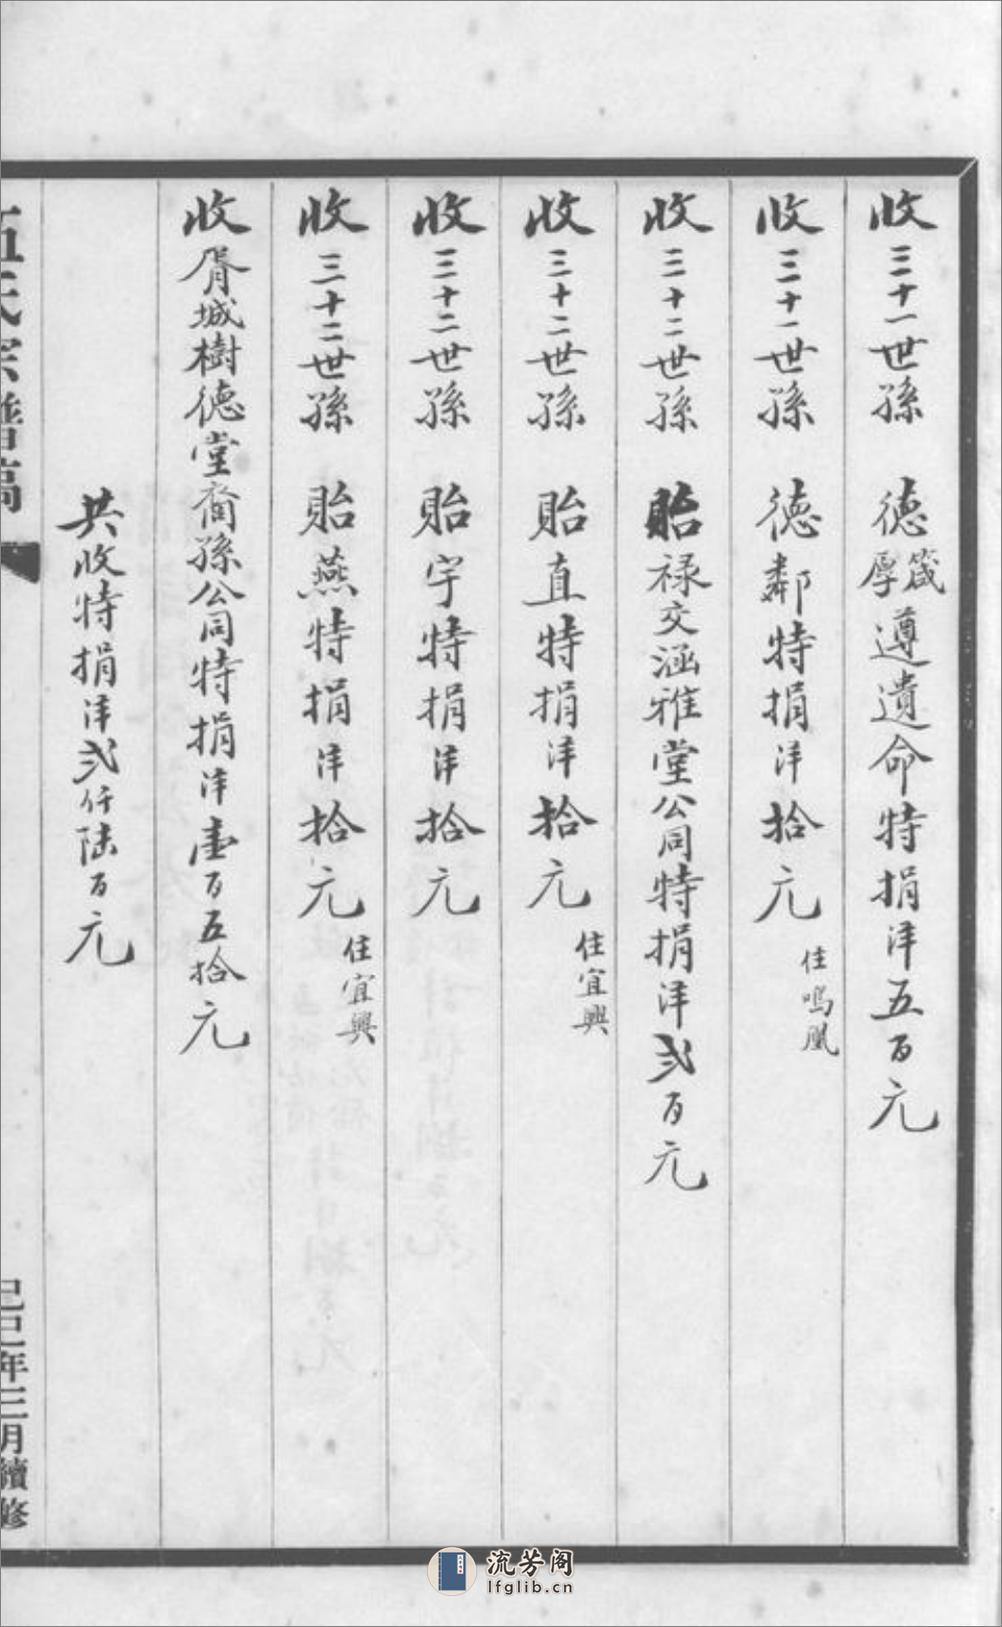 收三十一世孫　德箴厚遵遺命特捐洋五百元
收三十一世孫　德鄰特捐洋拾元住鳴凰
收三十二世孫　貽祿交涵雅堂公同特捐洋弍百元
收三十二世孫　貽直特捐洋拾元住宜興
收三十二世孫　貽宇特捐洋拾元
收三十二世孫　貽燕特捐洋拾元住宜興
收胥城樹德堂裔孫公同特捐洋壹百五拾元
共收特捐洋弍仟陸百元
伍氏宗譜稿
己巳年三月續修
流芳阁
lfglib.cn